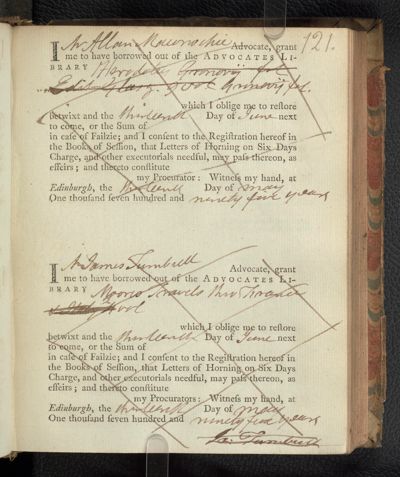 121.
I Mr Allan Maconochie Advocate, grant
me to have borrowed out of the ADVOCATES LI-
BRARY Herodoti Gronovij fol.
Edit Glasg Gronovij fol.
which I oblige me to restore
betwixt and the thirteenth Day of June next
to come, or the Sum of
in case of Failzie; and I consent to the Registration hereof in
the Books of Session, that Letters of Horning on Six Days
Charge, and other executorials needful, may pass thereon, as
effeirs; and thereto constitute
my Procurator: Witness my hand, at
Edinburgh, the thirteenth Day of may
One thousand seven hundred and ninety five years
I Mr James Turnbull Advocate, grant
me to have borrowed out of the ADVOCATES LI-
BRARY Moores Travels thro'
which I oblige me to restore
betwixt and the thirteenth Day of June next
to come, or the Sum of
in case of Failzie; and I consent to the Registration hereof in
the Books of Session, that Letters of Horning on Six Days
Charge, and other executorials needful, may pass thereon, as
effeirs; and thereto constitute
my Procurators: Witness my hand, at
Edinburgh, the thirteenth Day of may
One thousand seven hundred and ninety five years
Ja: Turnbull